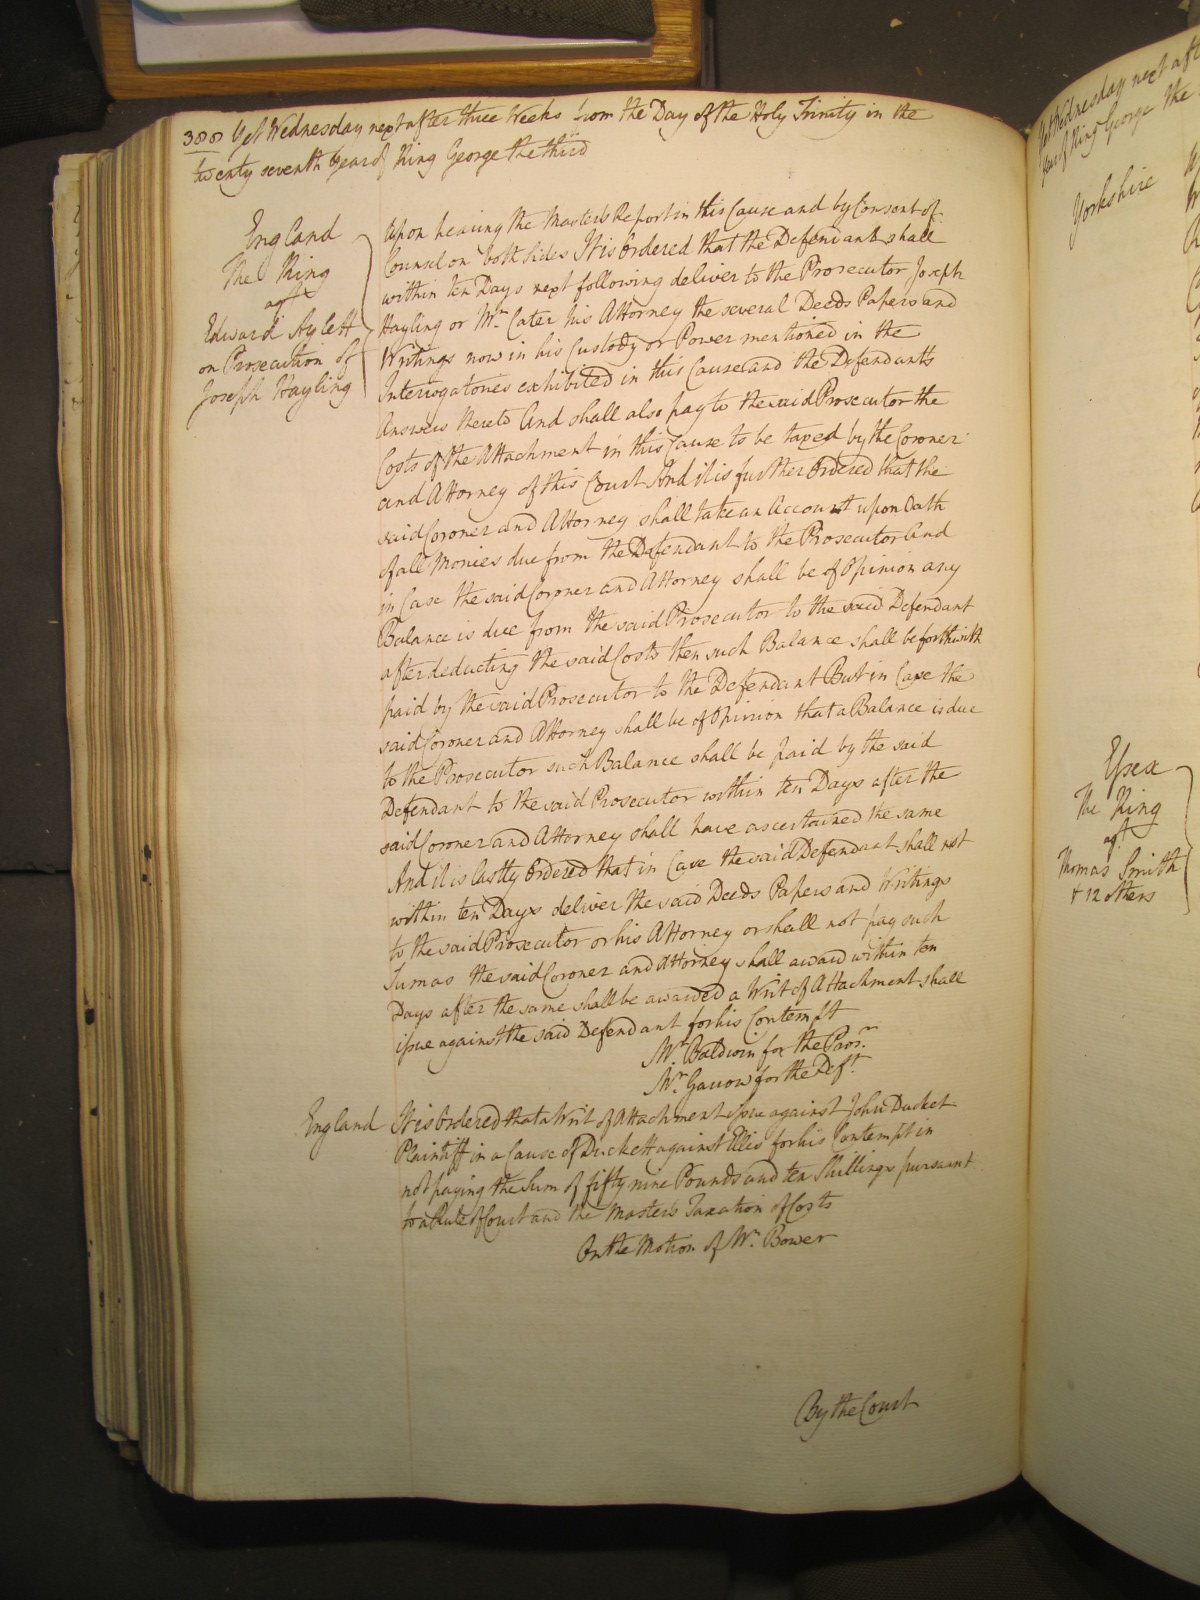 388 Yet Wednesday next after three Weeks from the Day of the Holy Trinity in the
twenty seventh Year of King George the third
England
The King
agt
Edward Aylett
on Prosecution of
Joseph Hayling
Upon hearing the Masters Report in this Cause and by Consent of
Counsel on both sides It is Ordered that the Defendant shall
within ten Days next following deliver to the Prosecutor Joseph
Hayling or Mr. Cater his Attorney the several Deeds Papers and
Writings now in his Custody or Power mentioned in the
Interrogatories exhibited in this Cause and the Defendants
Answers thereto And shall also pay to the said Prosecutor the
Costs of the Attachment in this Cause to be taxed by the Coroner
and Attorney of this Court And it is further Ordered that the
said Coroner and Attorney shall take an Account upon Oath
of all Monies due from the Defendant to the Prosecutor And
in Case the said Coroner and Attorney shall be of Opinion any
Balance is due from the said Prosecutor to the said Defendant
after deducting the said Costs then such Balance shall be forthwith
paid by the said Prosecutor to the Defendant But in Case the
said Coroner and Attorney shall be of Opinion that a Balance is due
to the Prosecutor such Balance shall be paid by the said
Defendant to the said Prosecutor within ten Days after the
said Coroner and Attorney shall have ascertained the same
And it is lastly Ordered that in Case the said Defendant shall not
within ten Days deliver the said Deeds Papers and Writings
to the said Prosecutor or his Attorney or shall not pay such
Sum as the said Coroner and Attorney shall award within ten
Days after the same shall be awarded a Writ of Attachment shall
issue against the said Defendant for his Contempt
Mr. Baldwin for the Prosr.
Mr. Garrow for the Deft.
England It is Ordered that a Writ of Attachment issue against John Ducket
Plaintiff in a Cause of Duckett against Ellis for his Contempt in
not paying the Sum of fifty nine Pounds and ten Shillings pursuant
to a Rule of Court and the Masters Taxation of Costs
On the Motion of Mr. Bower
By the Court
Yet Wednesday next aft
Year of King George the
Yorkshire
Essex
The King
agt
Thomas Smith
& 12 others